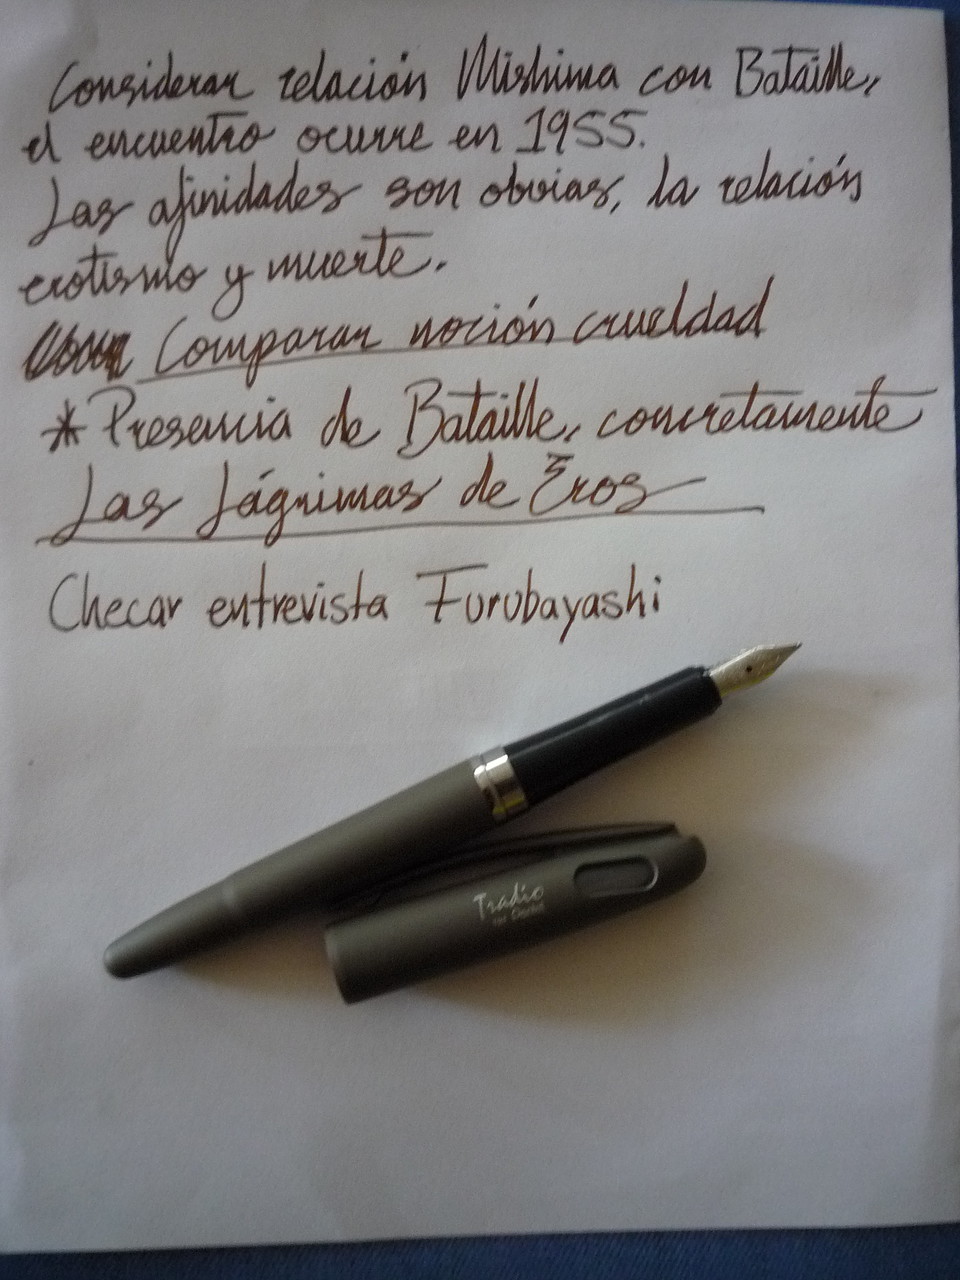 Considerar relación Mishima con Bataille,
el encuentro ocurre en 1955.
Las afinidades son obvias, la relación
erotismo y muerte.
Comparar noción crueldad
*Presencia de Bataille, concretamente
Las Lágrimas de Eros
Checar entrevista Furubayashi
Tradio